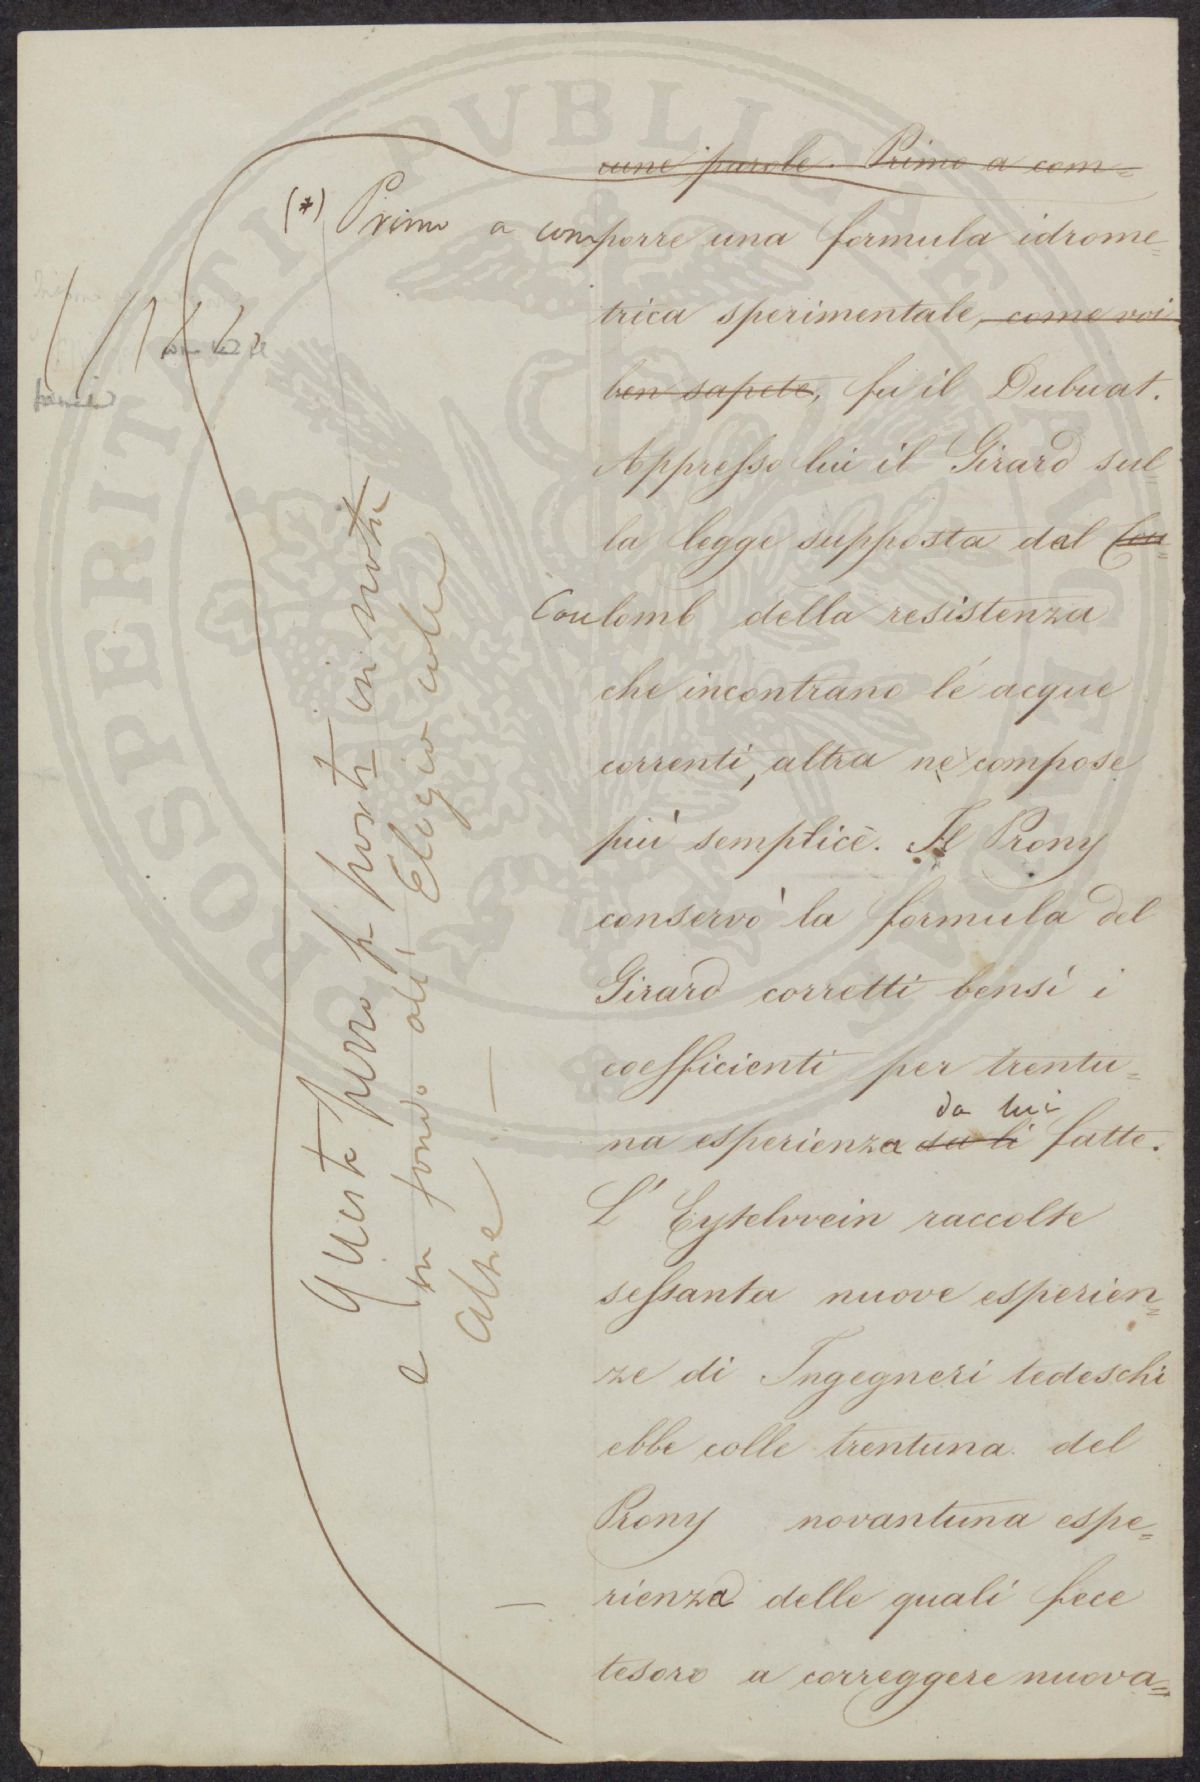 cune parole. Primo a com=
(*) Primo a comporre una formula idrome=
trica sperimentale, come voi
ben sapete, fu il Dubuat.
Appresso lui il Girard sul=
la legge supposta dal Cou=
Coulomb della resistenza
che incontrano le acque
correnti, altra ne compose
più semplice. Il Prony
conservò la formula del
Girard corretti bensì i
coefficienti per trentu=
da lui
na esperienza da li fatte.
L' Eytelvvein raccolte
sessanta nuove esperien=
ze di Ingegneri tedeschi
ebbe colle trentuna del
Prony novantuna espe=
rienza delle quali fece
tesoro a correggere nuova=
Questo pezzo fu posto in nota
e in fondo all' Elogio colle
altre —
PROSPERITATI PVBLICAE